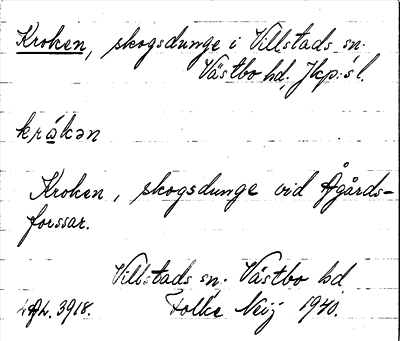 Kroken, skogsdunge i Villstads sn.
Västbo hd, Jkp:s l.
kråkən
Kroken, skogsdunge vid Ågårds-
forssar.
Villstads sn. Västbo hd
3918. Folke 1940.